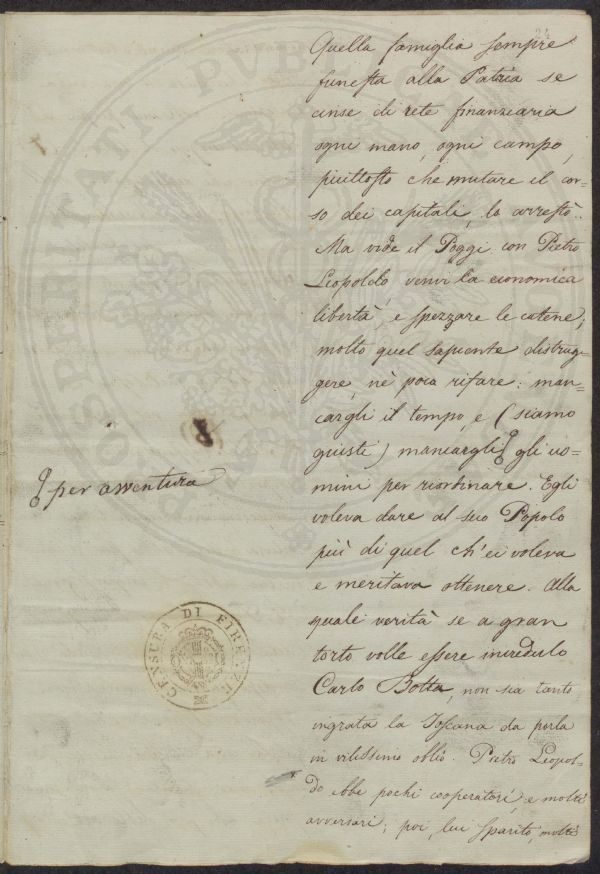 24
Quella famiglia sempre
funesta alla Patria se
cinse di rete finanziaria
ogni mano, ogni campo,
piuttosto che mutare il cor-
so dei capitali, lo arrestò.
Ma vide il Poggi con Pietro
Leopoldo, venir la economica
libertà, e spezzare le catene;
molto quel sapiente distrug-
gere, nè poco rifare: man-
cargli il tempo, e (siamo
giusti) mancargli gli uo-
mini per riordinare. Egli
voleva dare al suo Popolo
più di quel ch'ei voleva
e meritava ottenere. Alla
quale verità se a gran
torto volle essere incredulo
Carlo Botta, non sia tanto
ingrata la Toscana da porla
in vilissimo oblio. Pietro Leopol-
do ebbe pochi cooperatori, e molti
avversari; poi, lui sparito, molti
per avventura
CENSURA DI FIRENZE
PROSPERITATI PVBLICAE